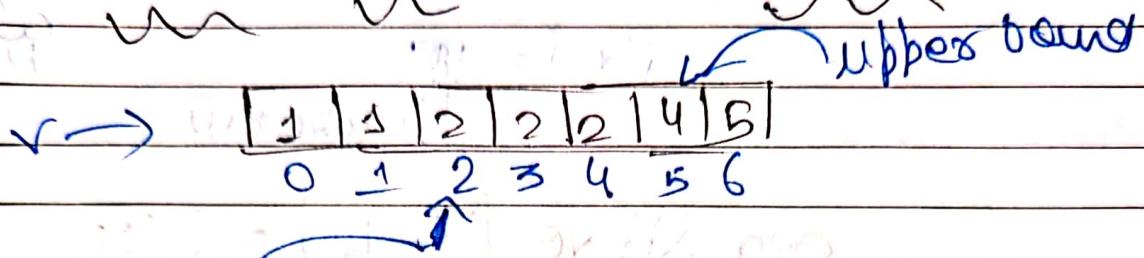 upper bound
v → 1 1 2 2 2 4 5
0 1 2 3 4 5 6